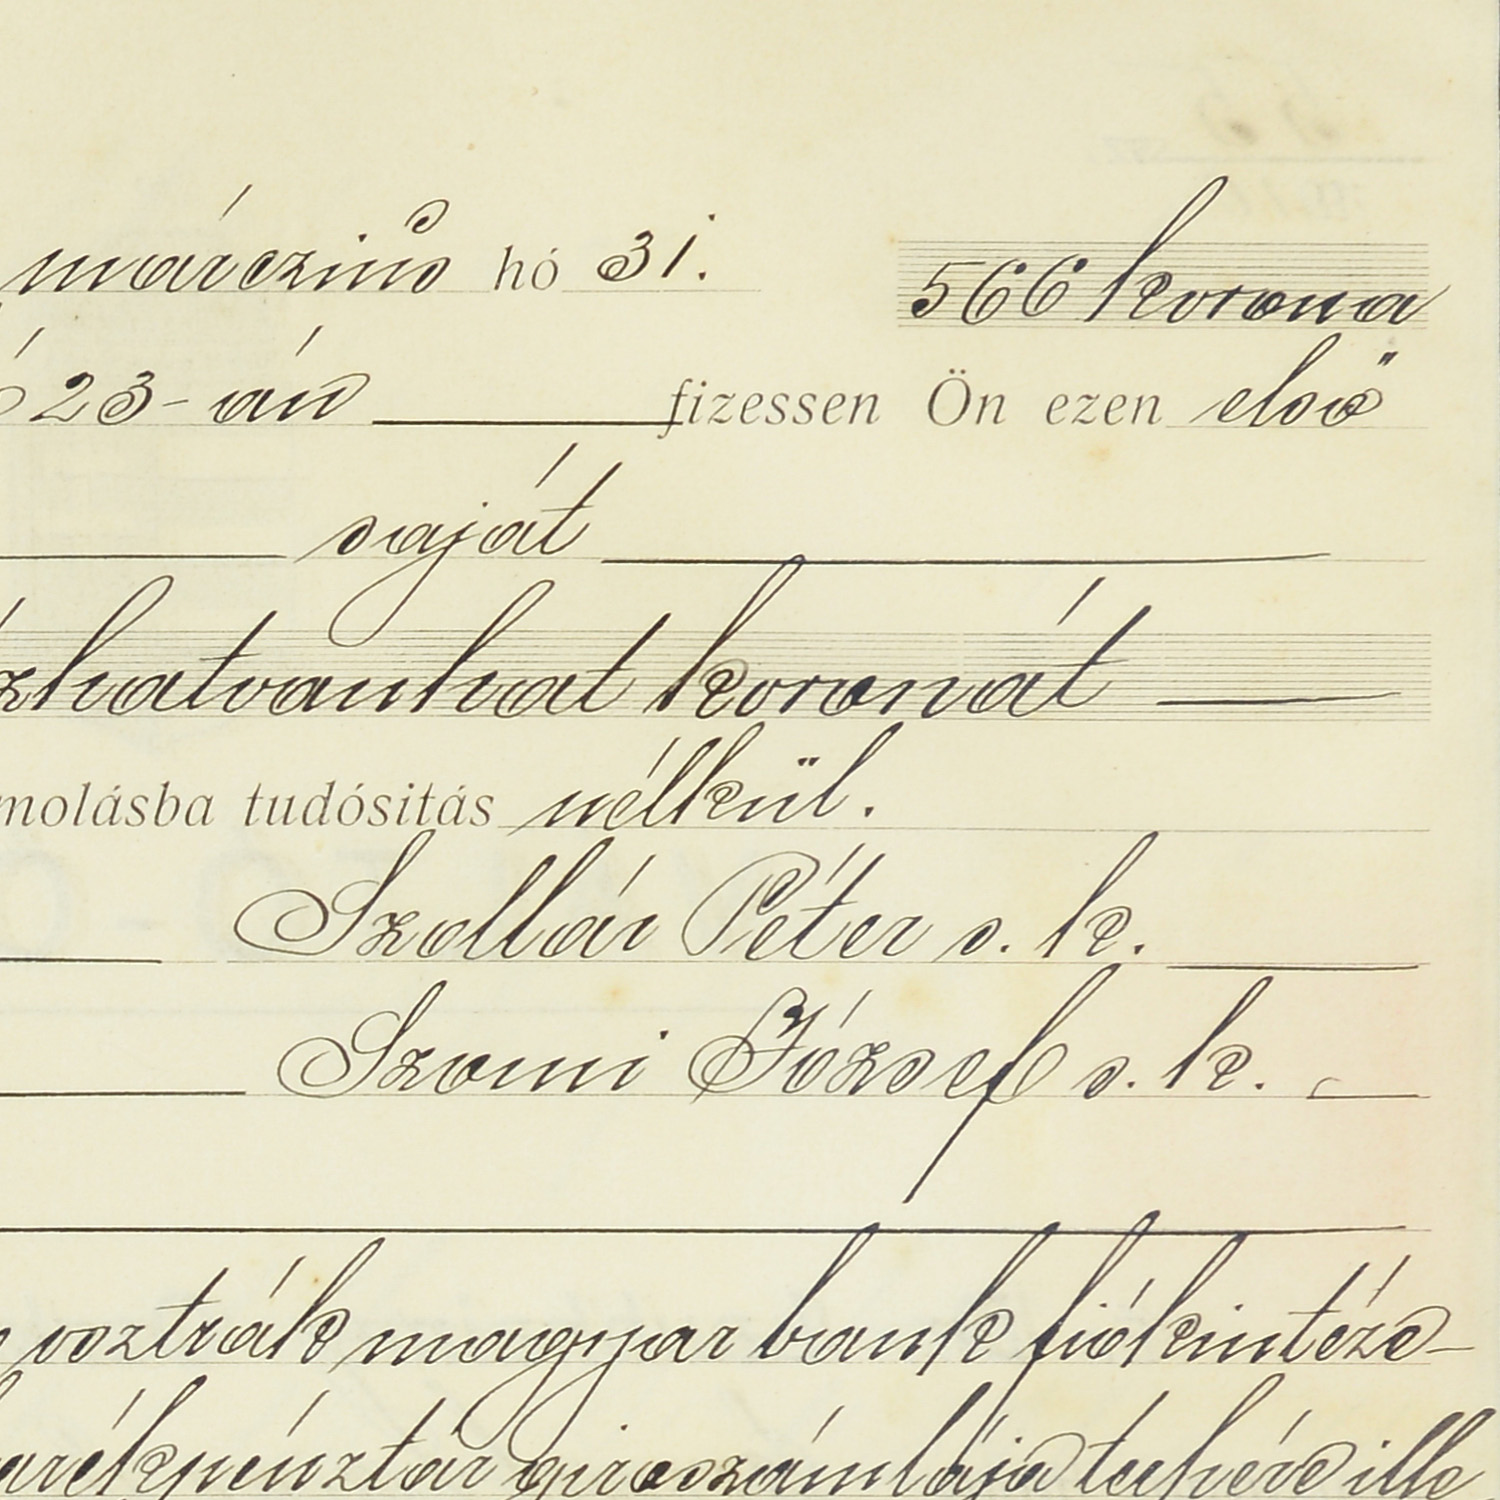 márczius hó 31. 566 korona
23-án fizessen Ön ezen első
saját
zhatvanhat koronát
molásba tudósitás nélkül.
Szollár Péter s. k.
Szomi József s. k.
osztrák magyar bank fiókintéze-
arékpénztár giroszámlája terhére ille